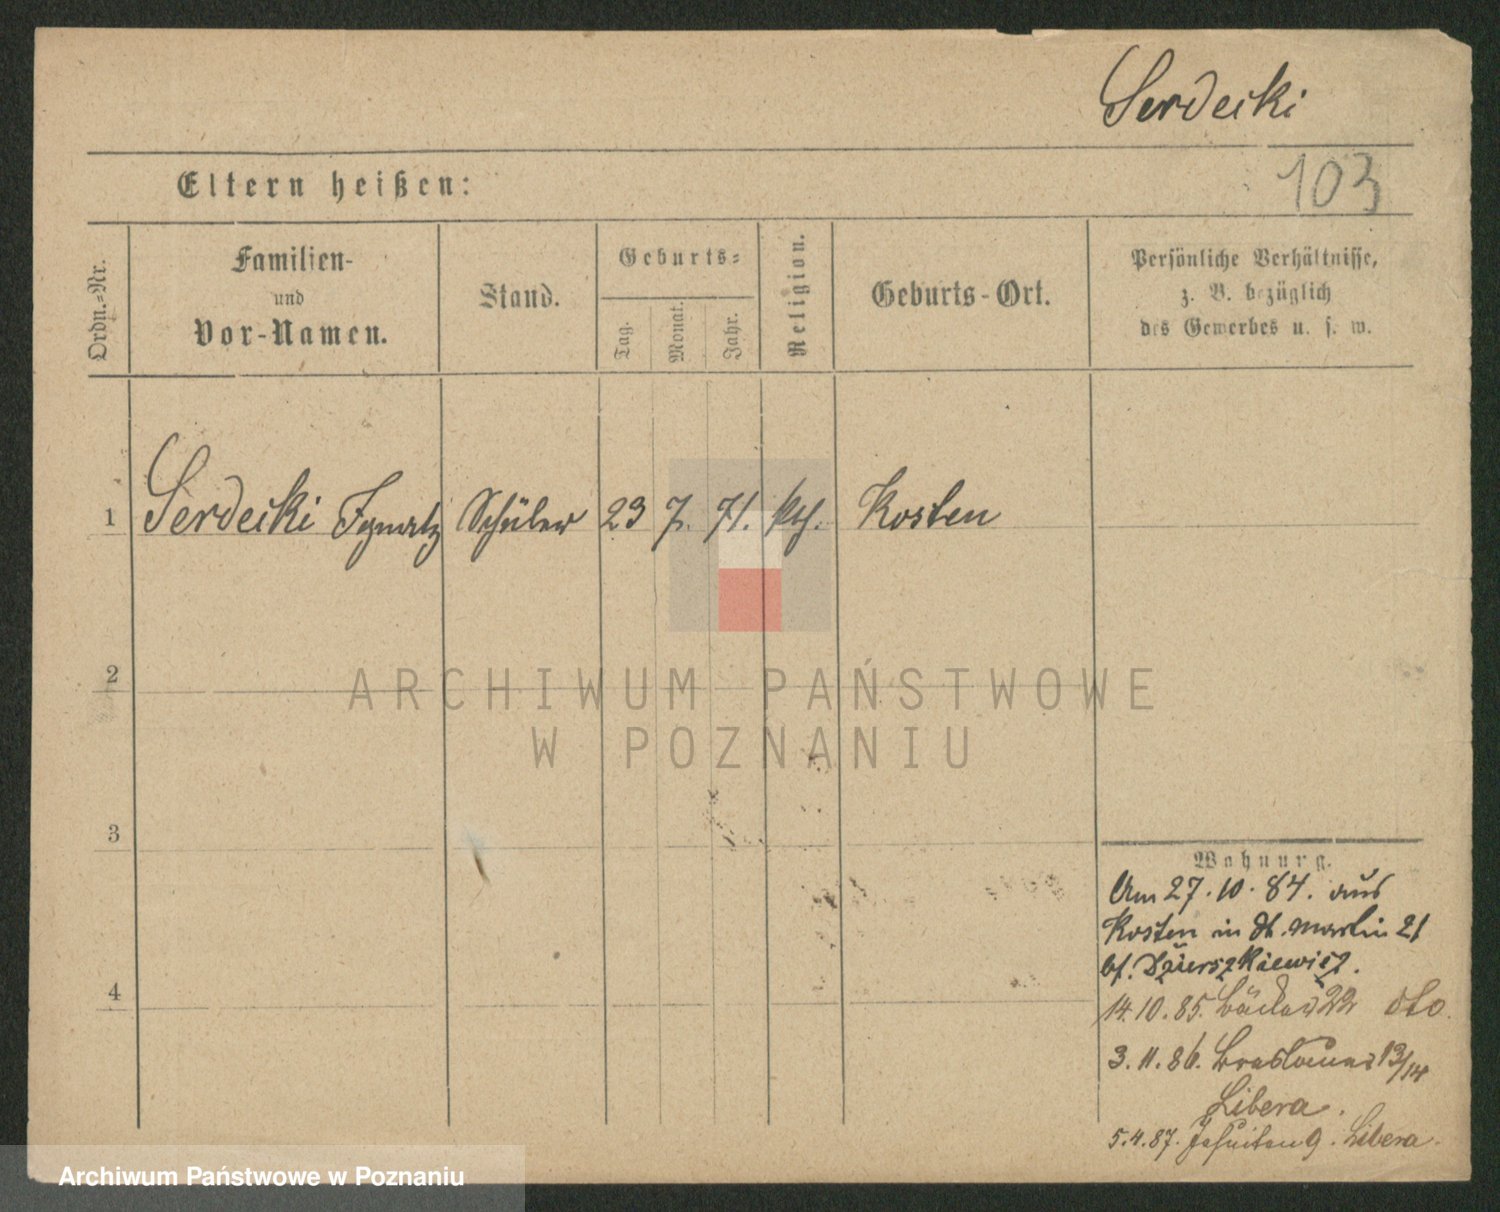 Serdecki
103
Eltern heißen:
Ordn.-Nr.
Familien-
und
Vor-Namen.
Stand.
Geburts-
Tag.
Monat.
Jahr.
Religion.
Geburts-Ort.
Persönliche Verhältnisse,
z. B. bezüglich
des Gewerbes u. s. w.
1 Serdecki Ignatz Schüler 23 7. 71. kth. Kosten
2
ARCHIWUM PAŃSTWOWE
W POZNANIU
3
4
Wohnung.
Am 27.10.84. aus
Kosten in St. Martin 21
bei
14.10.85. 22 dto.
3.11.86. 13/14
Libera.
5.4.87. Jesuiten 9. Libera.
Archiwum Państwowe w Poznaniu